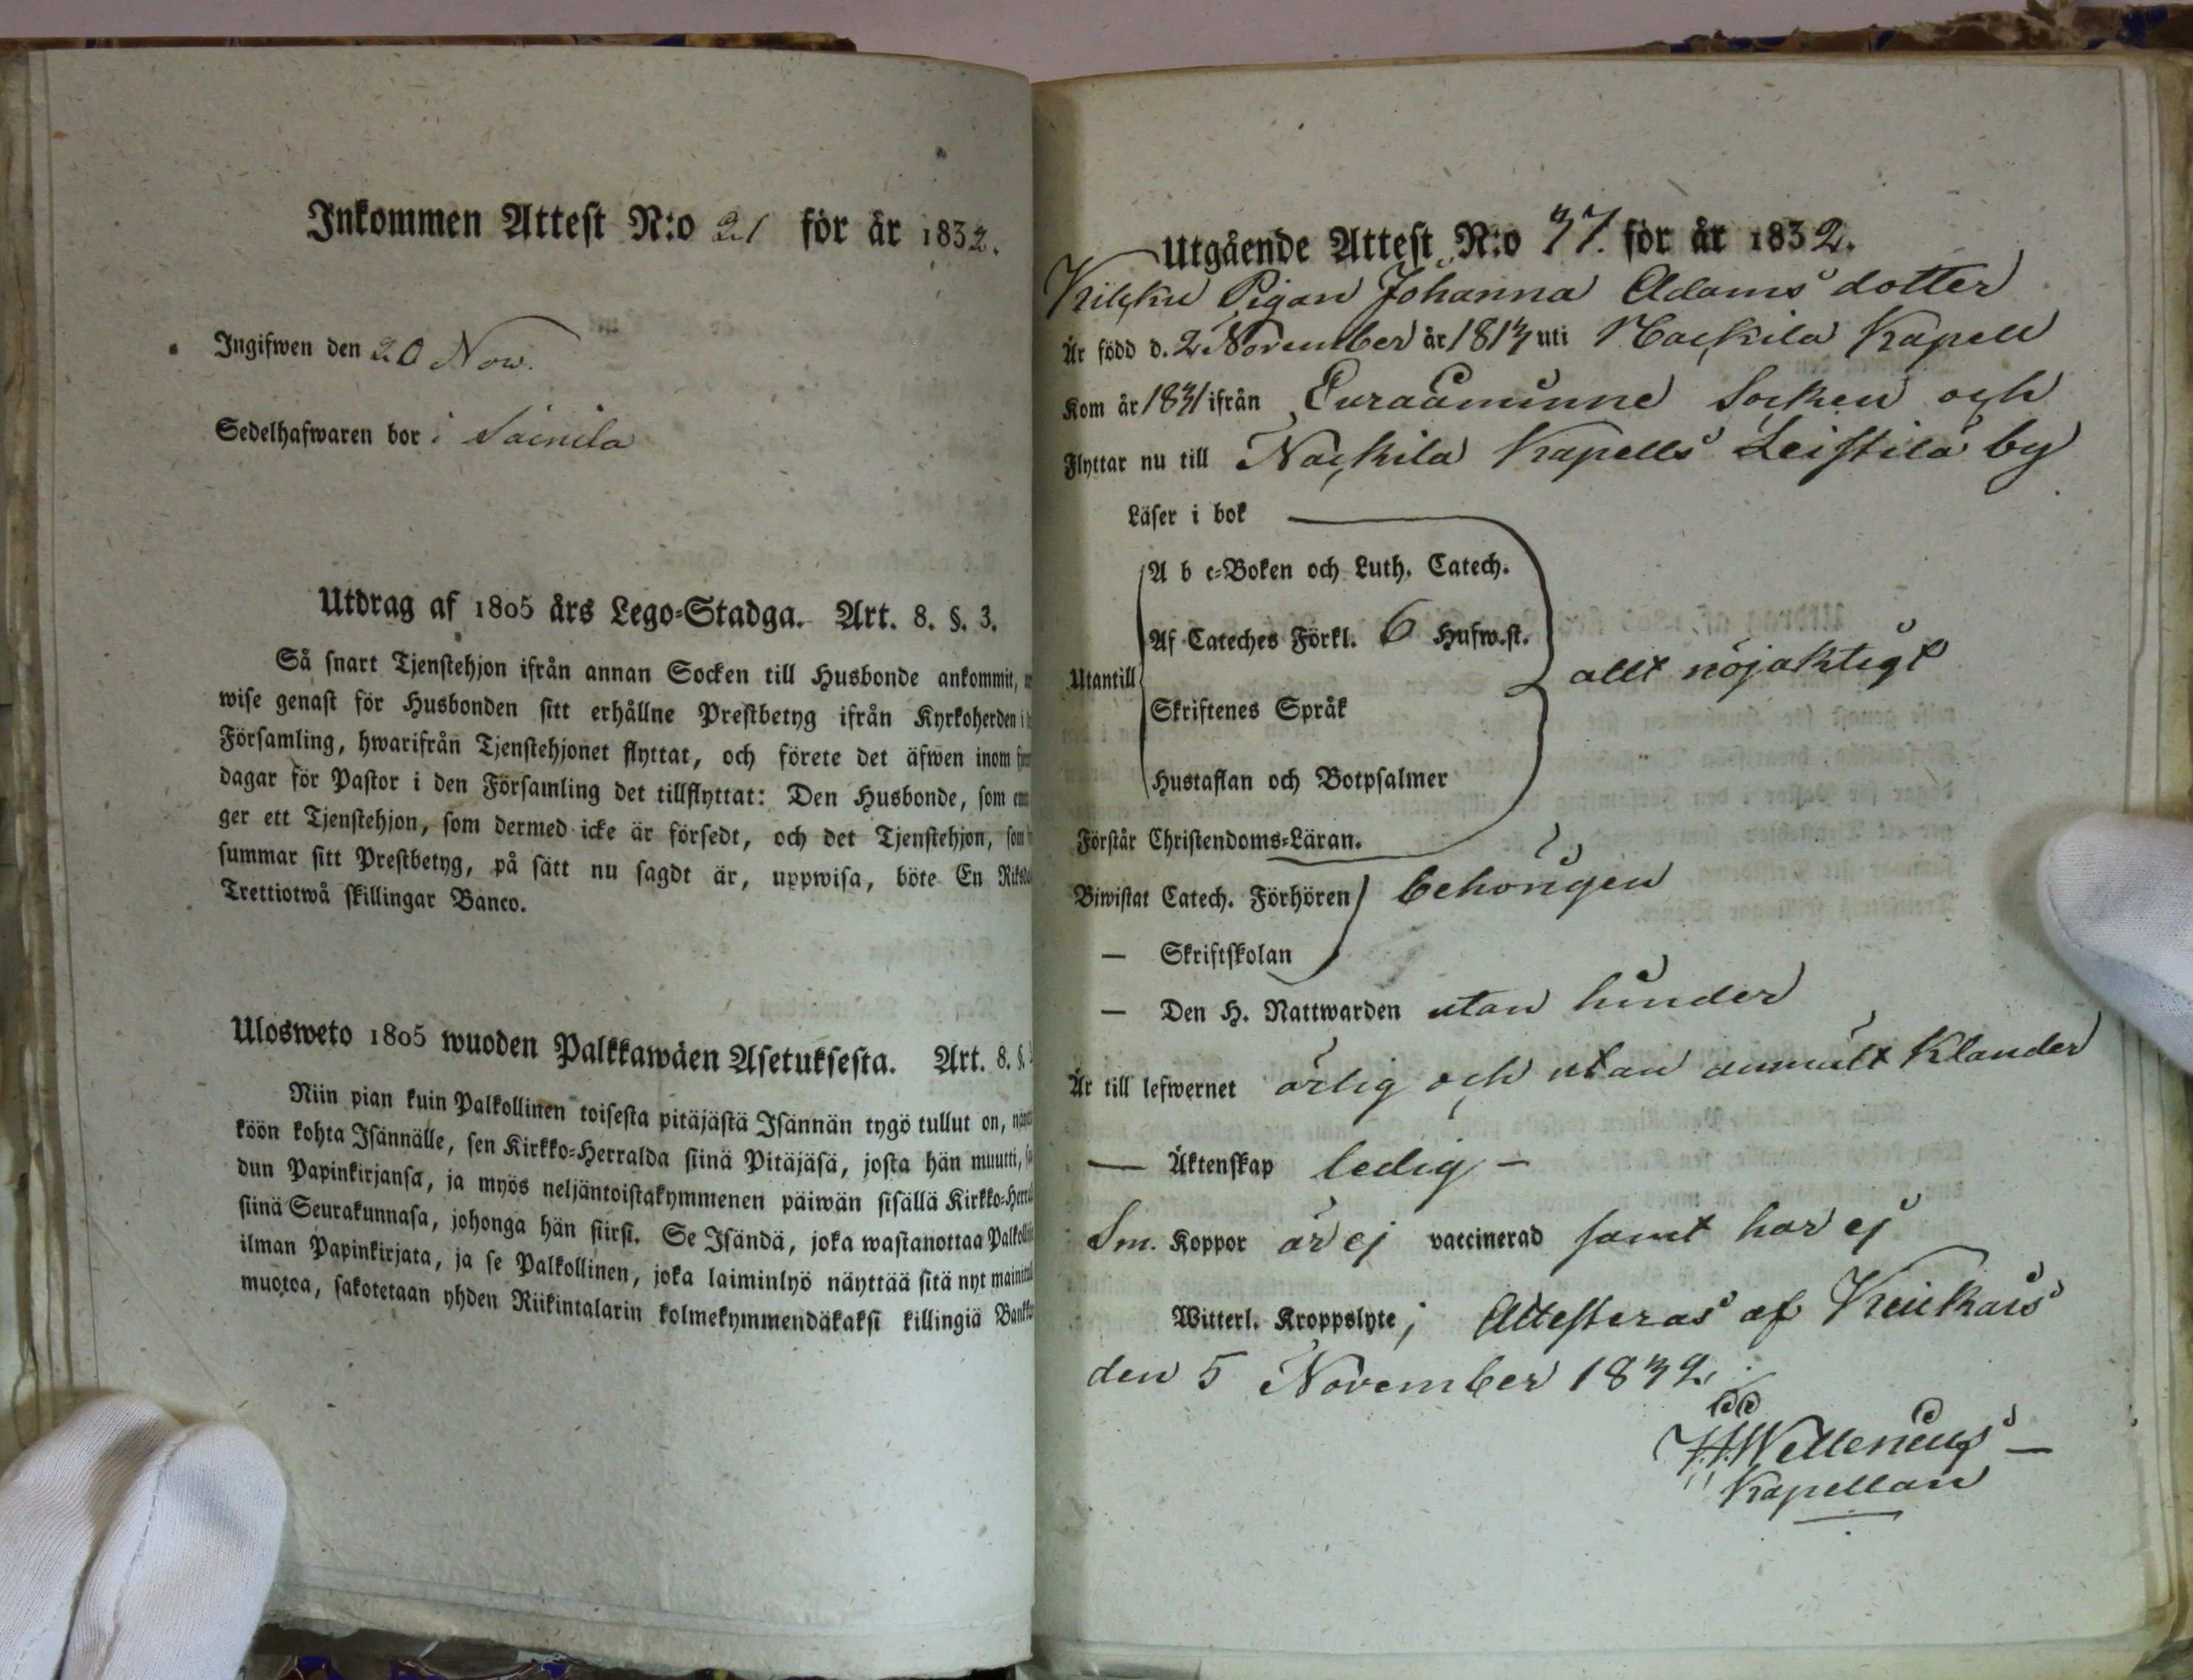 Inkommen Attest N:o 21 för år 1832.
Ingifwen den 20 Nov.
Sedelhafwaren bor i Sainila
Utdrag af 1805 års Lego-Stadga. Art. 8. §. 3.
Så snart Tjenstehjon ifrån annan Socken till Husbonde ankommit,
wise genast för Husbonden sitt erhållne Prestbetyg ifrån Kyrkoherden i
Församling, hwarifrån Tjenstehjonet flyttat, och förete det äfwen inom
dagar för Pastor i den Församling det tillflyttat: Den Husbonde, som
ger ett Tjenstehjon, som dermed icke är försedt, och det Tjenstehjon,
summar sitt Prestbetyg, på sätt nu sagdt är, uppwisa, böte En
Trettiotwå skillingar Banco.
Ulosweto 1805 wuoden Palkkawäen Asetuksesta. Art. 8. §.
Niin pian kuin Palkollinen toisesta pitäjästä Isännän tygö tullut on,
köön kohta Isännälle, sen Kirkko-Herralda siinä Pitäjäsä, josta hän muutti,
dun Papinkirjansa, ja myös neljäntoistakymmenen päiwän sisällä Kirkko-
siinä Seurakunnasa, johonga hän siirsi. Se Isändä, joka wastanottaa
ilman Papinkirjata, ja se Palkollinen, joka laiminlyö näyttää sitä nyt
muotoa, sakotetaan yhden Riikintalarin kolmekymmendäkaksi killingiä
Utgående Attest N:o 37. för år 1832.
Pigan Johanna Adams dotter
Är född d. 2 November år 1813 uti Nackila Kapell
Kom år 1831 ifrån Euraåminne Socken och
Flyttar nu till Nackila Kapells Leistilä by
Läser i bok
A b c-Boken och Luth. Catech.
Af Cateches Förkl. 6 Hufw.st.
Utantill
Skriftenes Språk
allt nöjaktigt
Hustaflan och Botpsalmer
Förstår Christendoms-Läran.
Biwistat Catech. Förhören behörigen
— Skriftskolan
— Den H. Nattwarden utan hinder
Är till lefwernet ärlig och utan anmält Klander
— Äktenskap ledig –
Sm. Koppor är ej vaccinerad samt har ej
Witterl. Kroppslyte; Attesteras af Keikais
den 5 November 1832.
Kapellan